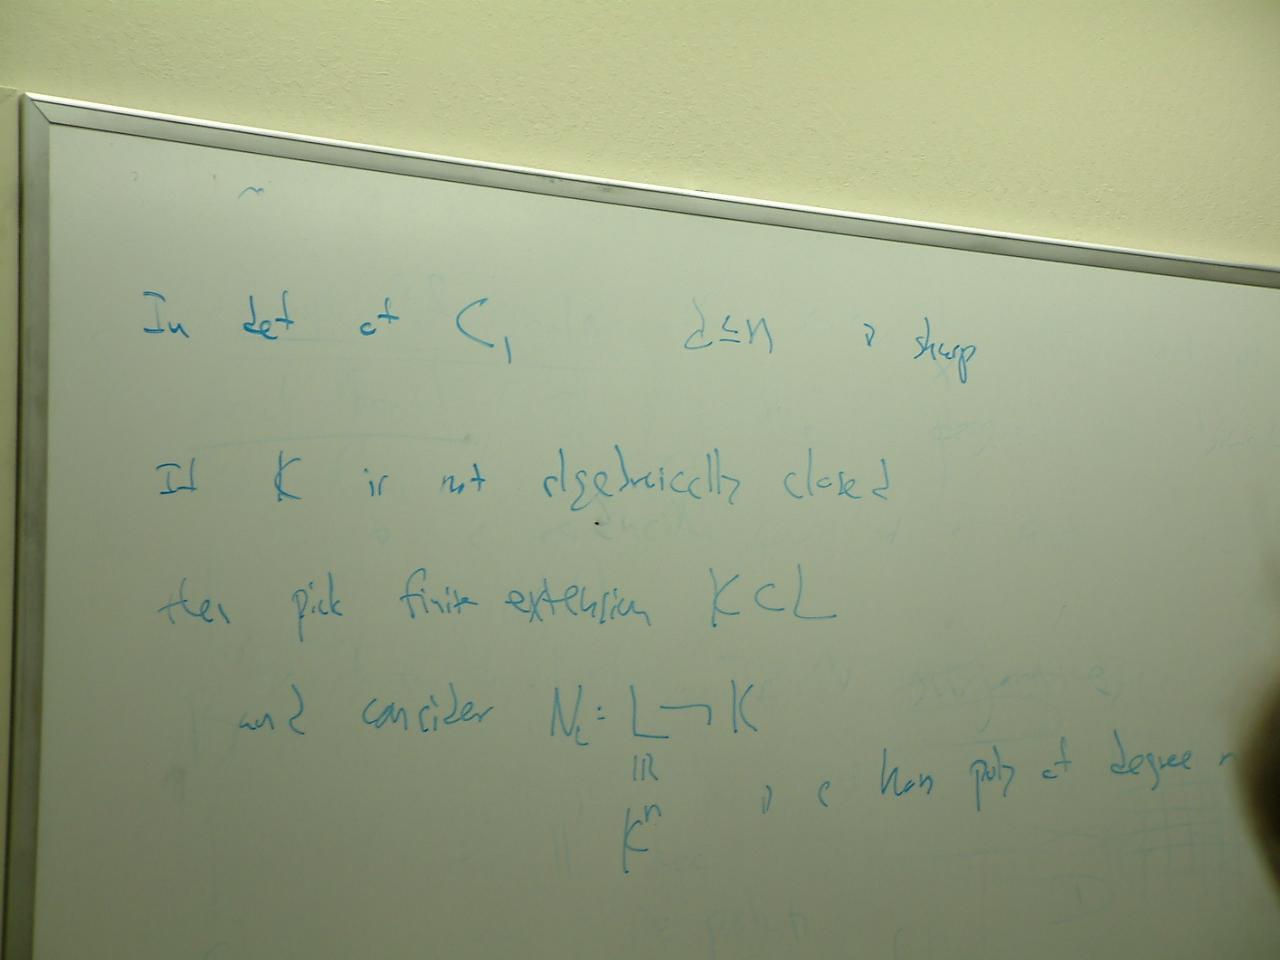 In def of C₁ d≤n is sharp
If K is not algebraically closed
then pick finite extension K⊂L
and consider N_L: L → K
IR
Kⁿ is a hom poly of degree n